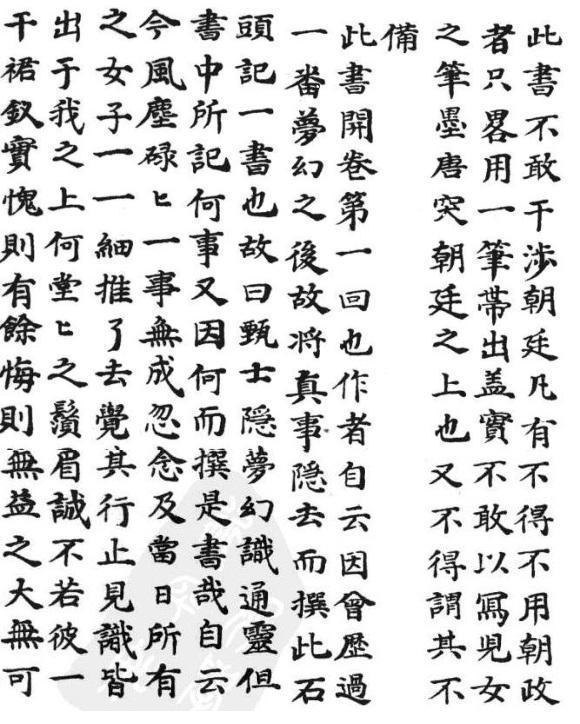 此書不敢干涉朝廷凡有不得不用朝政
者只畧用一筆帶出盖實不敢以寫兒女
之筆墨唐突朝廷之上也又不得謂其不
備
此書開卷第一回也作者自云因曾歷過
一畨夢幻之後故将真事隐去而撰此石
頭記一書也故曰甄士隐夢幻識通靈但
書中所記何事又因何而撰是書哉自云
今風塵碌匕一事無成忽念及當日所有
之女子一一細推了去覺其行止見識皆
出于我之上何堂匕之鬚眉誠不若彼一
干裙釵實愧則有餘悔則無益之大無可